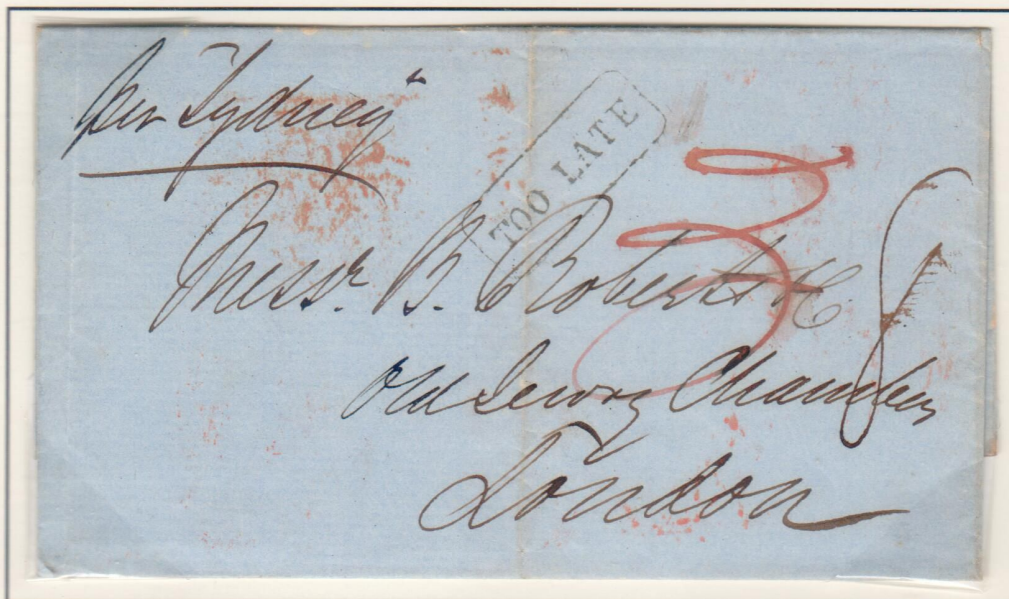 per "Sydney"
TOO LATE
3
Messrs. B. Roberts & Co
8
Old Jewry Chambers
London